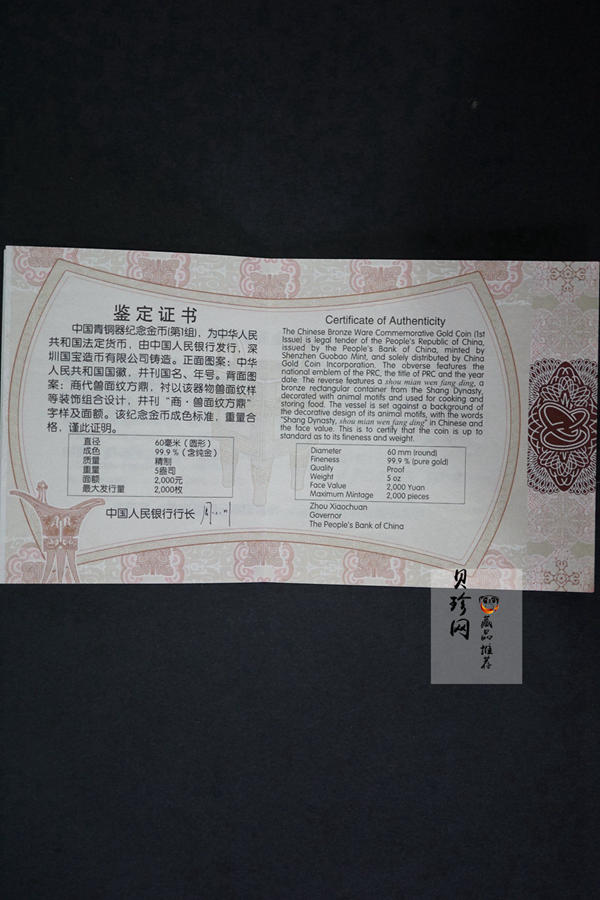 鉴定证书
中国青铜器纪念金币(第1组)，为中华人民
共和国法定货币，由中国人民银行发行，深
圳国宝造币有限公司铸造。正面图案：中华
人民共和国国徽，井刊国名、年号。背面图
案：商代兽面纹方鼎，衬以该器物兽面纹样
等装饰组合设计，井刊“商·兽面纹方鼎”
字样及面额。该纪念金币成色标准，重量合
格，谨此证明。
直径 60毫米（圆形）
成色 99.9％（含纯金）
质量 精制
重量 5盎司
面额 2,000元
最大发行量 2,000枚
中国人民银行行长
Certificate of Authenticity
The Chinese Bronze Ware Commemorative Gold Coin (1st
Issue) is legal tender of the People's Republic of China,
issued by the People's Bank of China, minted by
Shenzhen Guobao Mint, and solely distributed by China
Gold Coin Incorporation. The obverse features the
national emblem of the PRC, the title of PRC and the year
date. The reverse features a shou mian wen fang ding, a
bronze rectangular container from the Shang Dynasty,
decorated with animal motifs and used for cooking and
storing food. The vessel is set against a background of
the decorative design of its animal motifs, with the words
"Shang Dynasty, shou mian wen fang ding" in Chinese and
the face value. This is to certify that the coin is up to
standard as to its fineness and weight.
Diameter 60 mm (round)
Fineness 99.9 % (pure gold)
Quality Proof
Weight 5 oz
Face Value 2,000 Yuan
Maximum Mintage 2,000 pieces
Zhou Xiaochuan
Governor
The People's Bank of China
贝珍网
藏品推荐